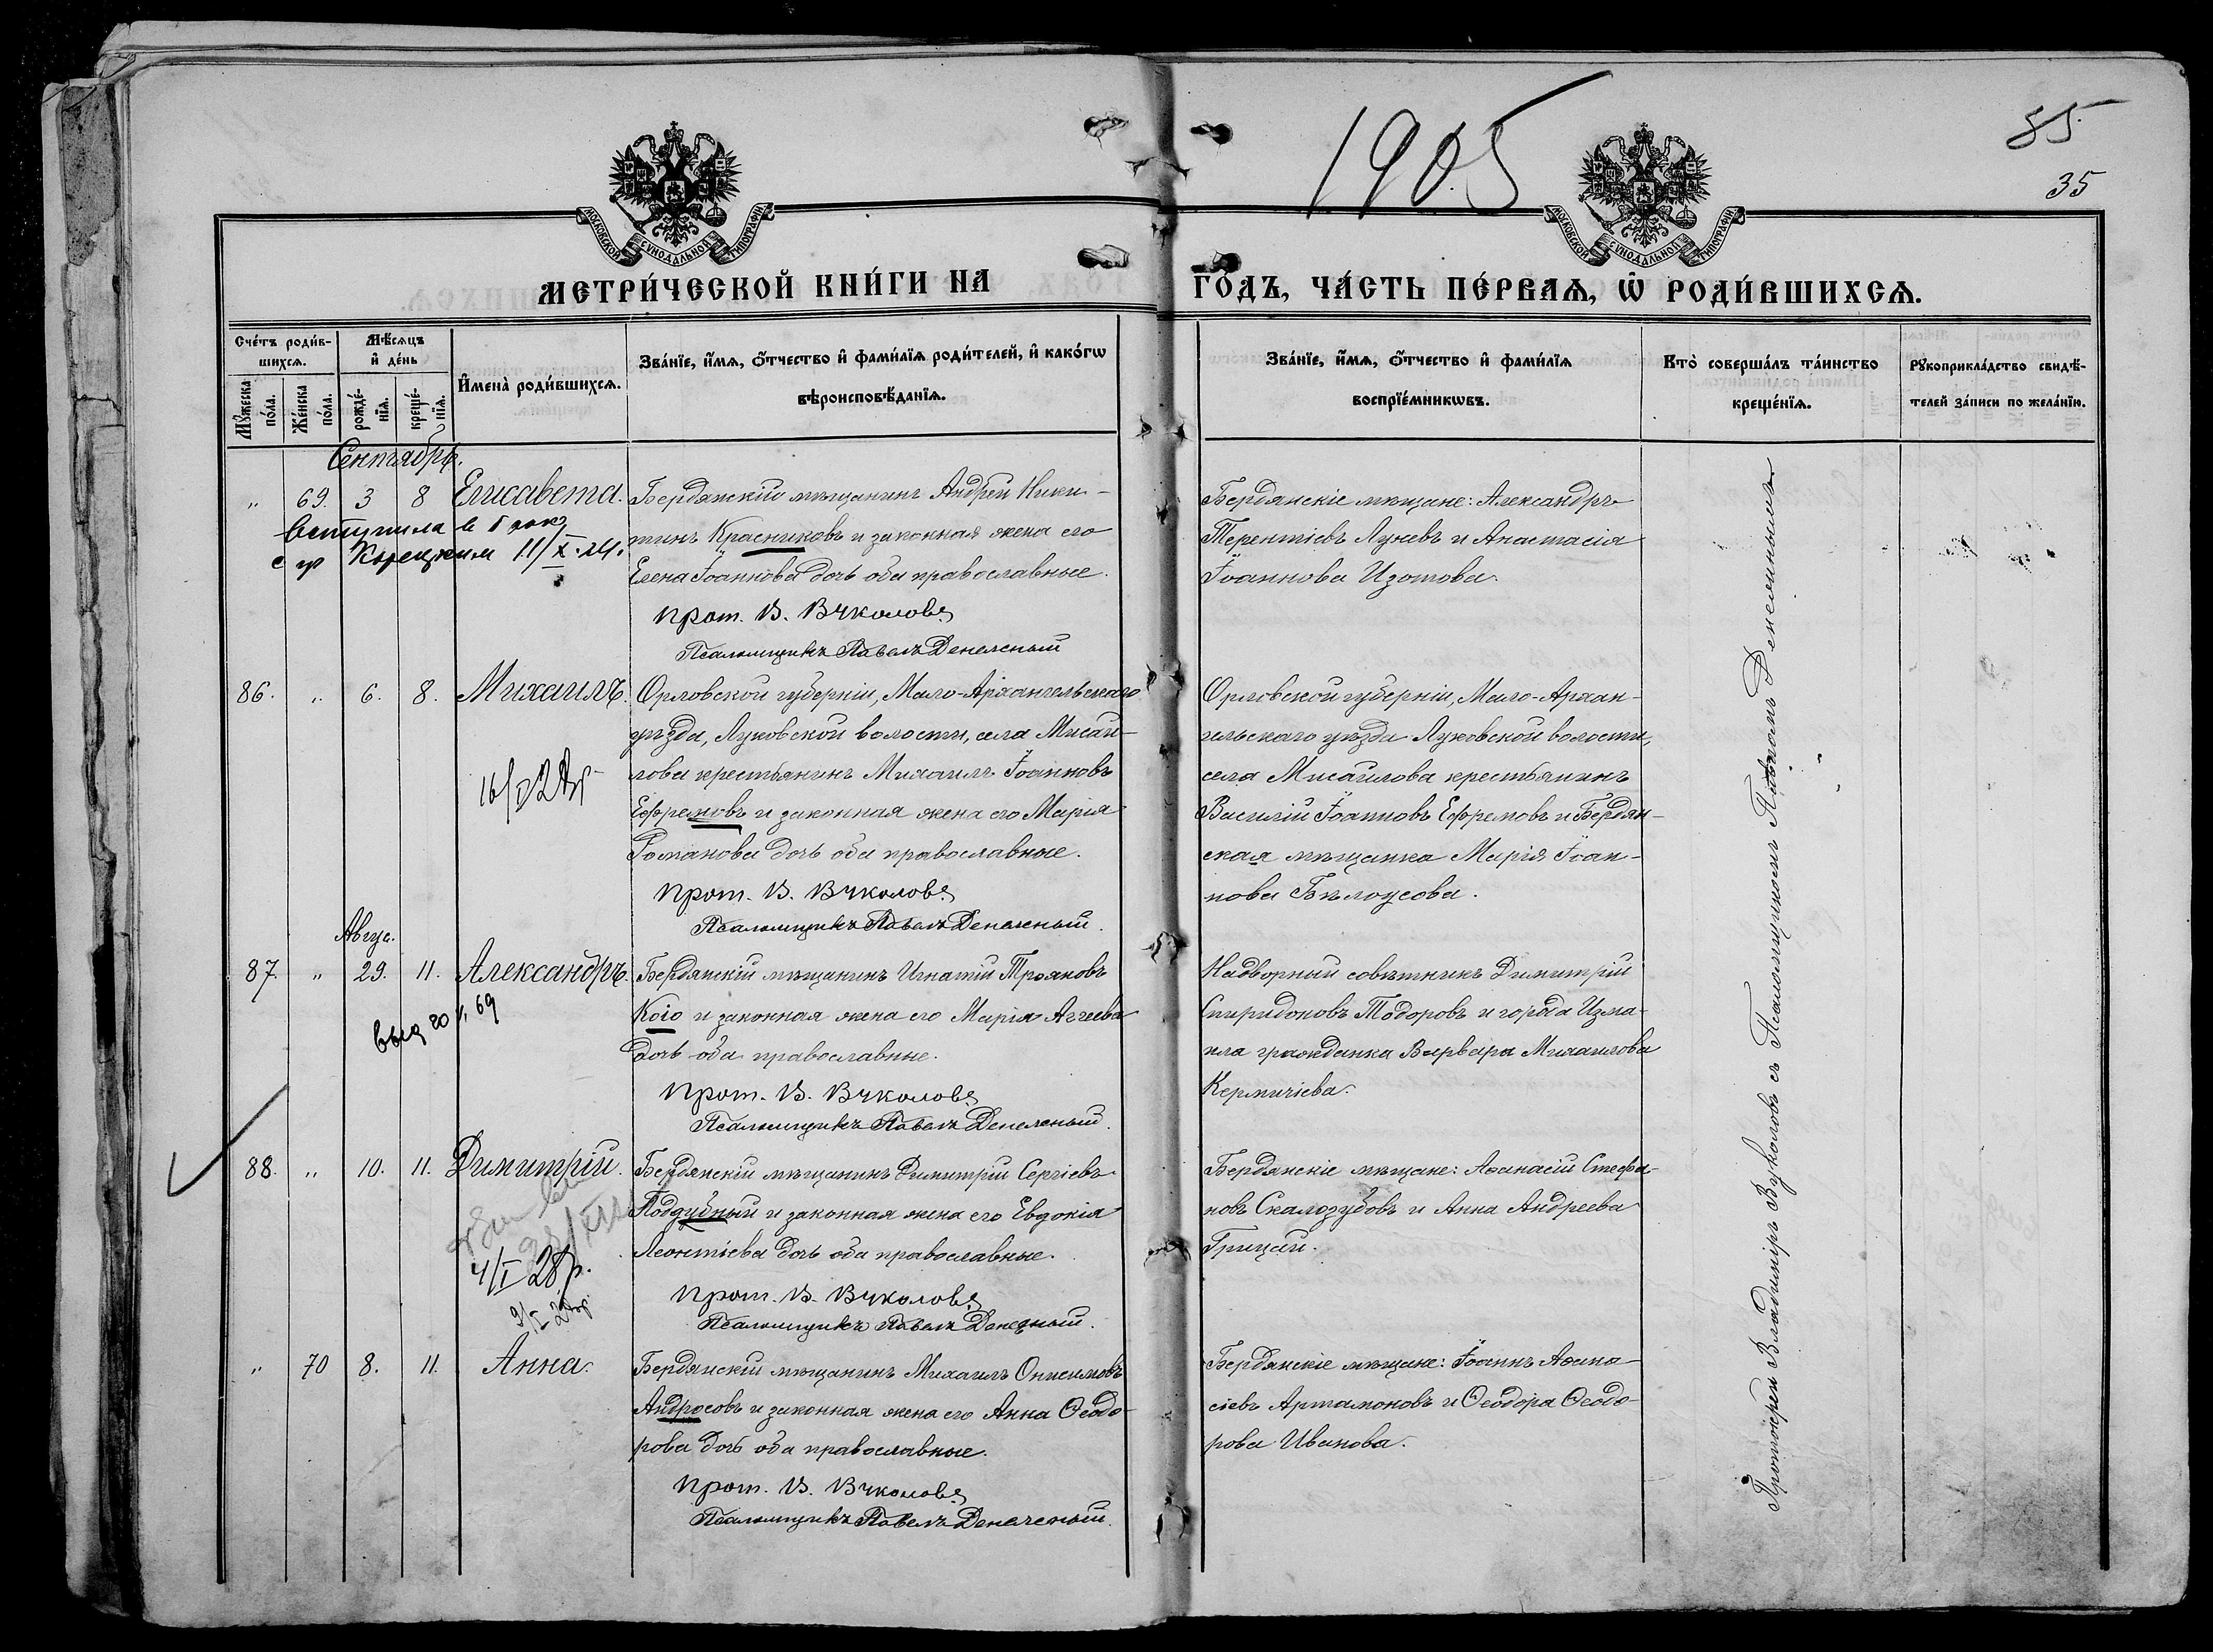 1905
85
35
МОСКОВСКОЙ СѴНОДАЛЬНОЙ ТИПОГРАФІИ
МОСКОВСКОЙ СѴНОДАЛЬНОЙ ТИПОГРАФІИ
МЕТРИ́ЧЕСКОЙ КНИ́ГИ НА
ГО́ДЪ, ЧА́СТЬ ПЕ́РВАѦ, Ѡ РОДИ́ВШИХСѦ.
Сче́тъ роди́в-
шихсѧ.
Мꙋ́жеска
по́ла.
Же́нска
по́ла.
Мѣ́сѧцъ
и҆ де́нь
рожде́-
нїѧ.
креще́-
нїѧ.
И҆мена̀ роди́вшихсѧ.
Зва́нїе, и҆́мѧ, ѻ҆́тчество и҆ фами́лїѧ роди́телей, и҆ како́гѡ
вѣроисповѣ́данїѧ.
Зва́нїе, и҆́мѧ, ѻ҆́тчество и҆ фами́лїѧ
воспрїе́мникѡвъ.
Кто̀ соверша́лъ та́инство
креще́нїѧ.
Рꙋкоприкла́дство свидѣ́-
телей за́писи по жела́нїю.
Сентябрь.
" 69. 3 8 Елисавета.
Вступила в брак
с гр Корецким 11/X-24.
Бердянскій мѣщанинъ Андрей Ники-
тинъ Красниковъ и законная жена его
Елена Іоаннова дочь оба православные.
Прот. В. Вуколовъ
Псаломщикъ Павелъ Денеленый
Бердянскіе мѣщане: Александръ
Терентіевъ Луневъ и Анастасія
Іоаннова Изотова.
86. " 6. 8. Михаилъ.
Орловской губерніи, Мало-Архангельскаго
уѣзда, Луковской волости, села Мисаи-
лова крестьянинъ Михаилъ Іоанновъ
Ефремовъ и законная жена его Марія
Романова дочь оба православные.
Прот. В. Вуколовъ
Псаломщикъ Павелъ Денеленый.
Орловской губерніи, Мало-Архан-
гельскаго уѣзда Луковской волости,
села Мисаилова крестьянинъ
Василій Іоанновъ Ефремовъ и Бердян-
ская мѣщанка Марія Іоан-
нова Бѣлоусова.
Авгус.
87. " 29. 11. Александръ.
Бердянскій мѣщанинъ Игнатій Трояновъ
Кого и законная жена его Марія Аггеева
дочь оба православные.
Прот. В. Вуколовъ
Псаломщикъ Павелъ Денеленый.
Надворный совѣтникъ Димитрій
Спиридоновъ Тодоровъ и города Изма-
ила гражданка Варвара Михаилова
Кермичіева.
88. " 10. 11. Димитрій.
4/I 28р.
Бердянскій мѣщанинъ Димитрій Сергіевъ
Поддубный и законная жена его Евдокія
Леонтіева дочь оба православные.
Прот. В. Вуколовъ
Псаломщикъ Павелъ Денеленый.
Бердянскіе мѣщане: Аѳанасій Стефа-
новъ Скалозубовъ и Анна Андреева
Грицай.
" 70 8. 11. Анна.
Бердянскій мѣщанинъ Михаилъ Онисимовъ
Андросовъ и законная жена его Анна Ѳеодо-
рова дочь оба православные.
Прот. В. Вуколовъ
Псаломщикъ Павелъ Денеленый.
Бердянскіе мѣщане: Іоаннъ Аѳана-
сіевъ Артамоновъ и Ѳеодора Ѳеодо-
рова Иванова.
Протоіерей Владиміръ Вуколовъ съ Псаломщикомъ Павломъ Денеленымъ